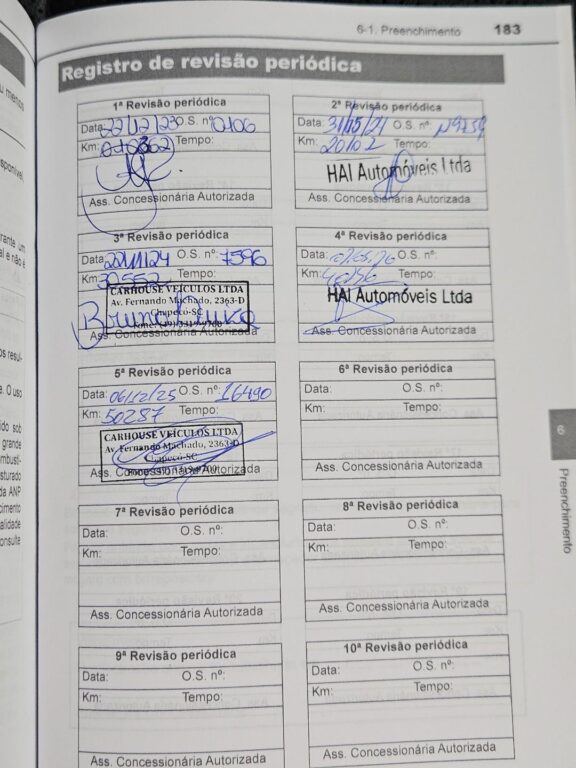 6-1. Preenchimento 183
Registro de revisão periódica
1ª Revisão periódica
Data: 22/12/23 O.S. nº:
Km: Tempo:
Ass. Concessionária Autorizada
2ª Revisão periódica
Data: O.S. nº:
Km: 20102 Tempo:
HAI Automóveis Ltda
Ass. Concessionária Autorizada
3ª Revisão periódica
Data: O.S. nº: 7596
Km: 30552 Tempo:
CARHOUSE VEÍCULOS LTDA
Av. Fernando Machado, 2363-D
Chapecó-SC
Ass. Concessionária Autorizada
4ª Revisão periódica
Data: O.S. nº:
Km: Tempo:
HAI Automóveis Ltda
Ass. Concessionária Autorizada
5ª Revisão periódica
Data: 06/12/25 O.S. nº: 16490
Km: 50287 Tempo:
CARHOUSE VEÍCULOS LTDA
Av. Fernando Machado, 2363-D
Chapecó-SC
Ass. Concessionária Autorizada
6ª Revisão periódica
Data: O.S. nº:
Km: Tempo:
Ass. Concessionária Autorizada
7ª Revisão periódica
Data: O.S. nº:
Km: Tempo:
Ass. Concessionária Autorizada
8ª Revisão periódica
Data: O.S. nº:
Km: Tempo:
Ass. Concessionária Autorizada
9ª Revisão periódica
Data: O.S. nº:
Km: Tempo:
Ass. Concessionária Autorizada
10ª Revisão periódica
Data: O.S. nº:
Km: Tempo:
Ass. Concessionária Autorizada
6
Preenchimento